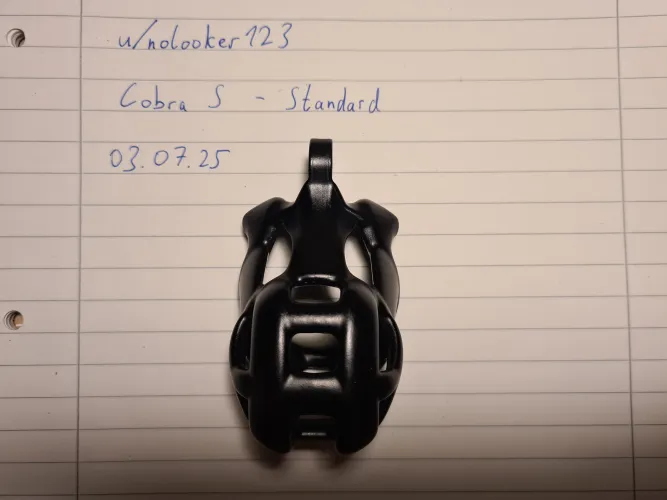 u/nolooker123
Cobra S - Standard
03.07.25